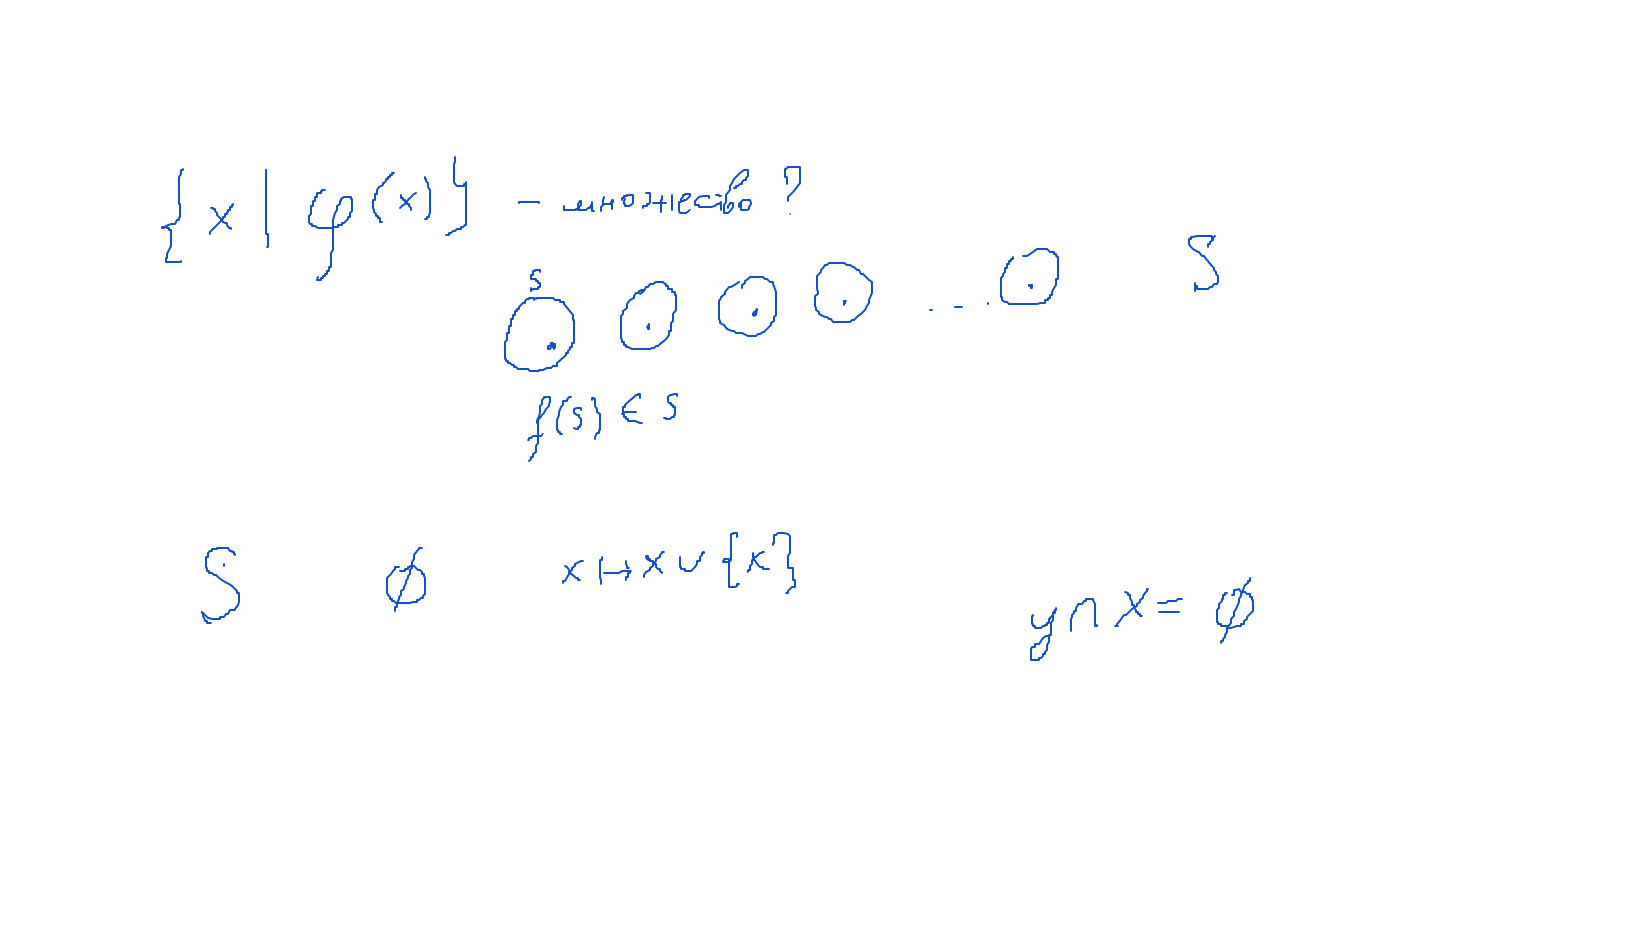 {x | φ(x)} - множество ?
s
S
. - . 
f(s) ∈ s
S ∅ x ↦ x ∪ {x}
y ∩ x = ∅